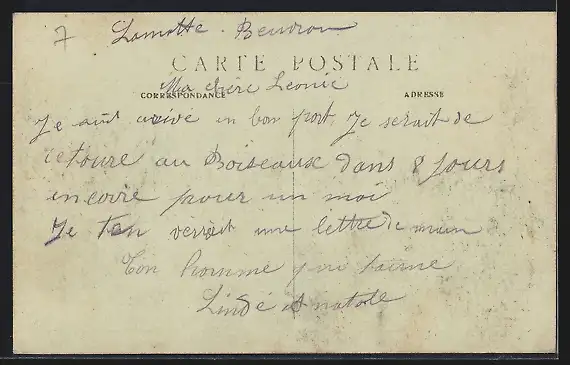 7 Lamotte-Beuvron
CARTE POSTALE
Ma chère Leonie
CORRESPONDANCE ADRESSE
Je suit arivé en bon port Je serait de
retoure au Boiseaux dans 8 jours
encoire pouer un moi
Je t'en verrait une lettre de main
Ton homme qui taime